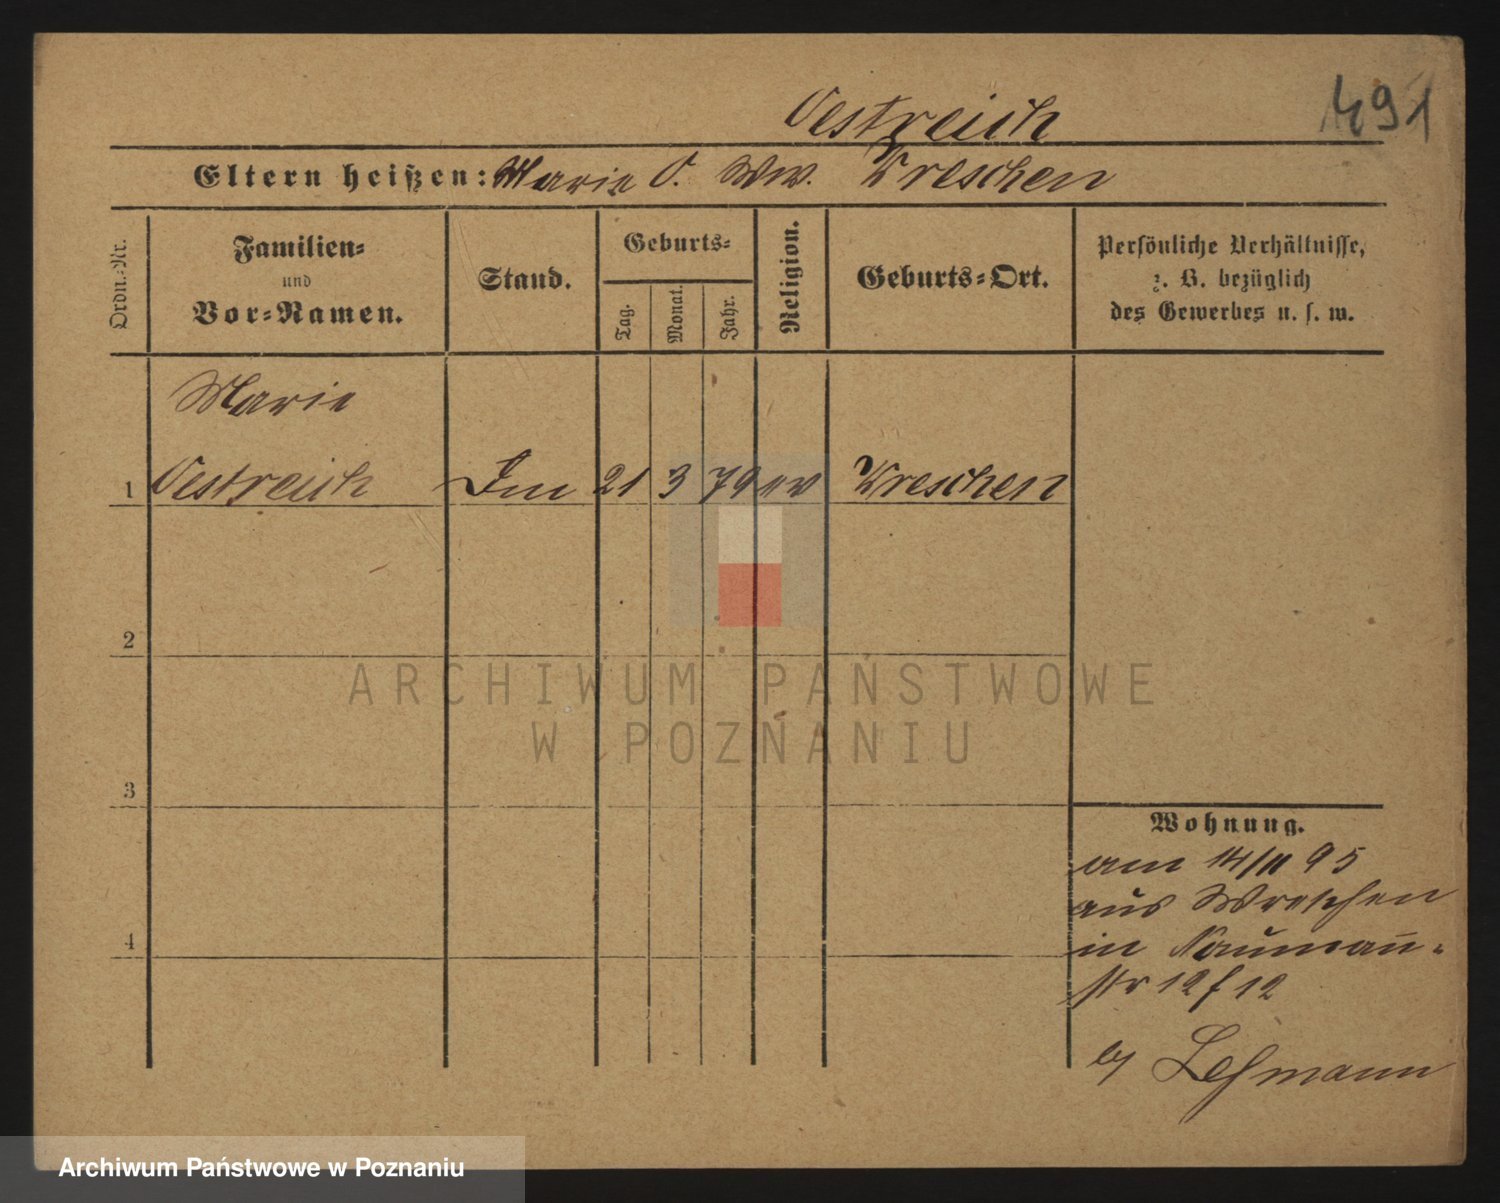 Oestreich
491
Eltern heißen: Marie O. Ww. Wreschen
Ordn.-Nr.
Familien-
und
Vor-Namen.
Stand.
Geburts-
Tag.
Monat.
Jahr.
Religion.
Geburts-Ort.
Persönliche Verhältnisse,
z. B. bezüglich
des Gewerbes u. s. w.
Marie
1 Oestreich 21 3 79 Wreschen
2
3
4
Wohnung.
am 14/11 95
aus Wreschen
in Nauman̄-
str 12
Lehmann
ARCHIWUM PAŃSTWOWE
W POZNANIU
Archiwum Państwowe w Poznaniu